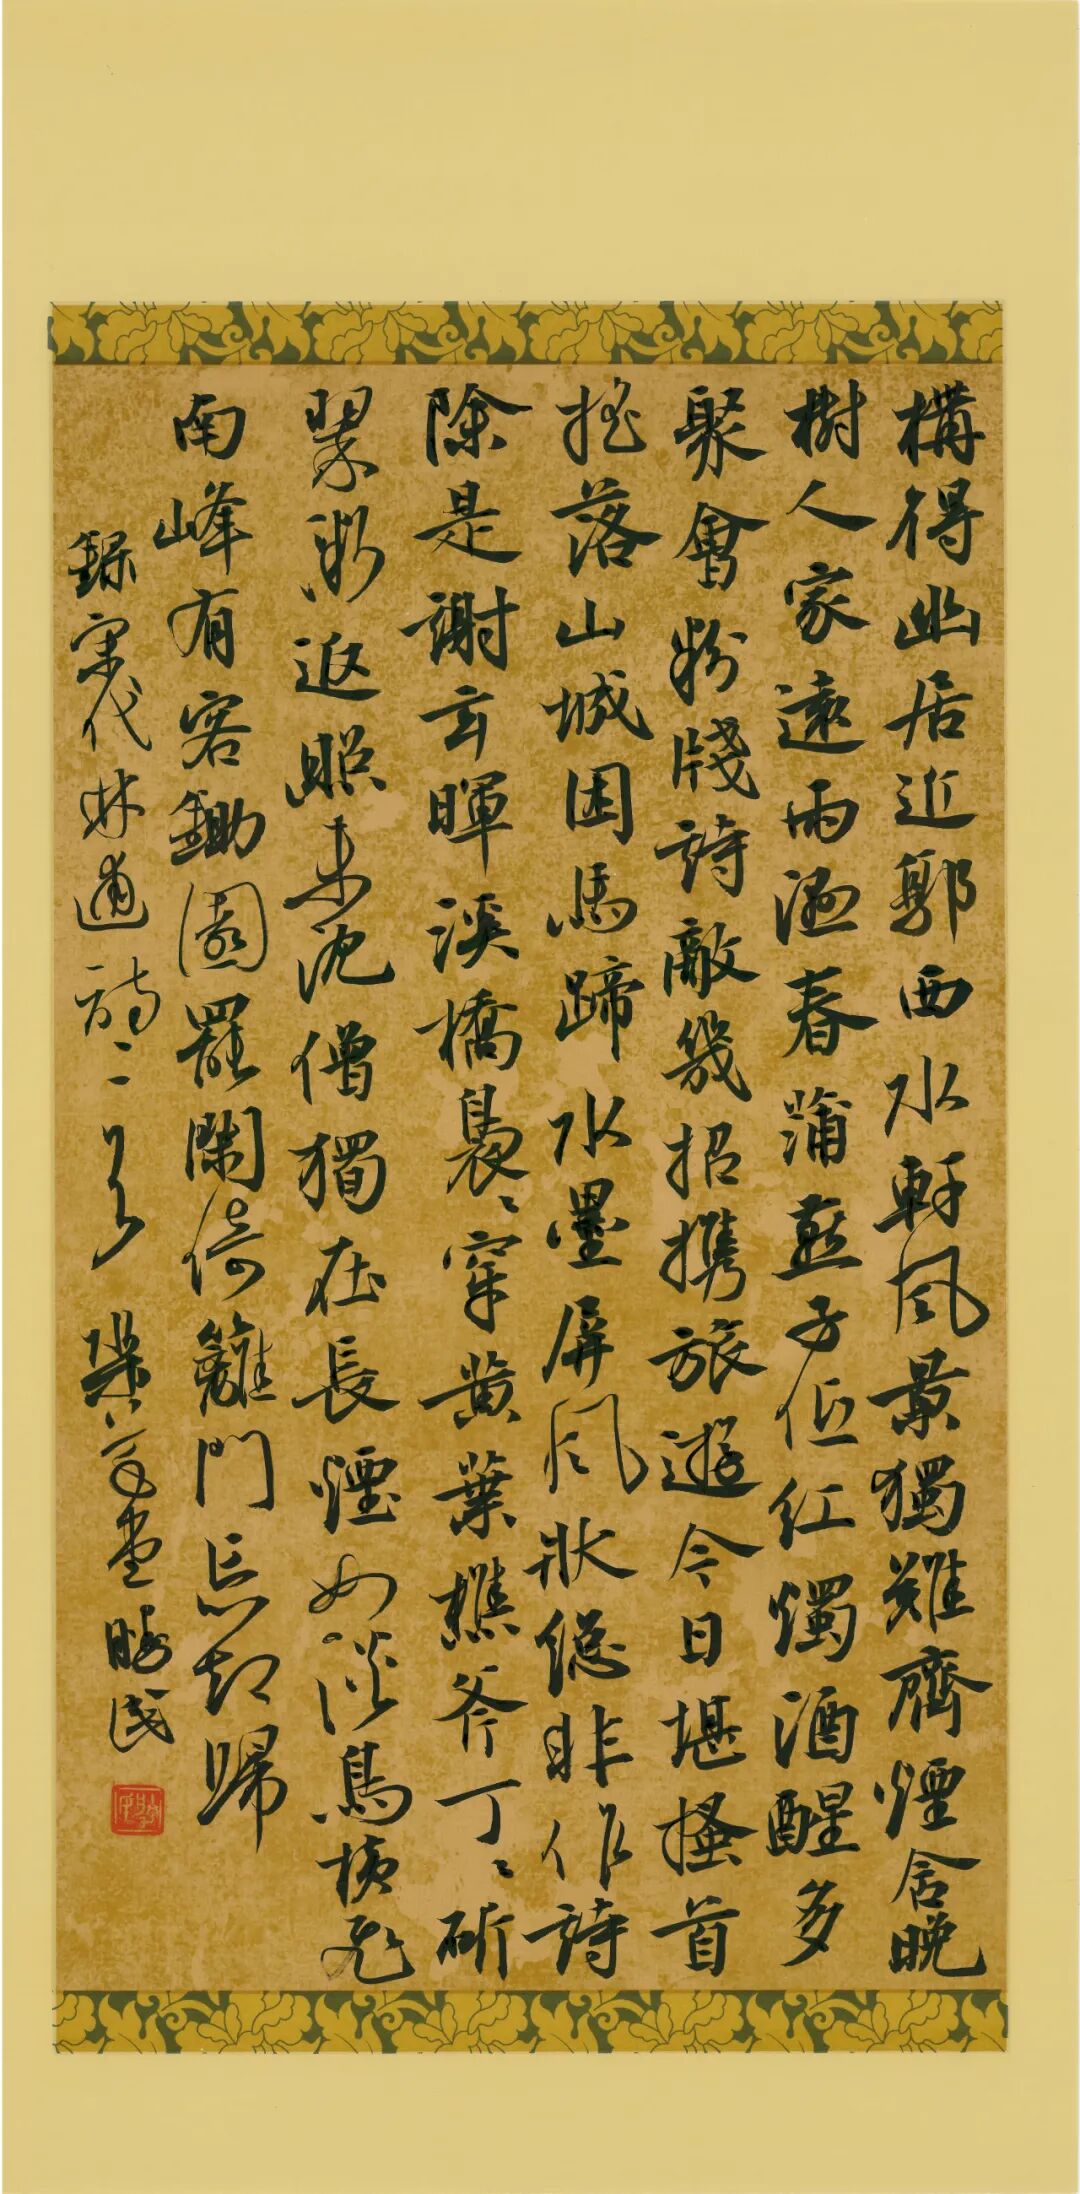 構得幽居近郭西水軒風景獨難齊煙舍晚
樹人家遠雨濕春蒲燕子低紅燭酒醒多
聚會粉牋詩敵幾招攜旅遊今日堪搔首
搖落山城困馬蹄水墨屏風狀總非作詩
除是謝玄暉溪橋裊〻穿黃葉樵斧丁〻斫
翠微返照未沈僧獨在長煙如淡鳥橫飛
南峰有客鋤園罷閑倚籬門忘却歸
錄宋代林逋詩二首 樂 堂 勝